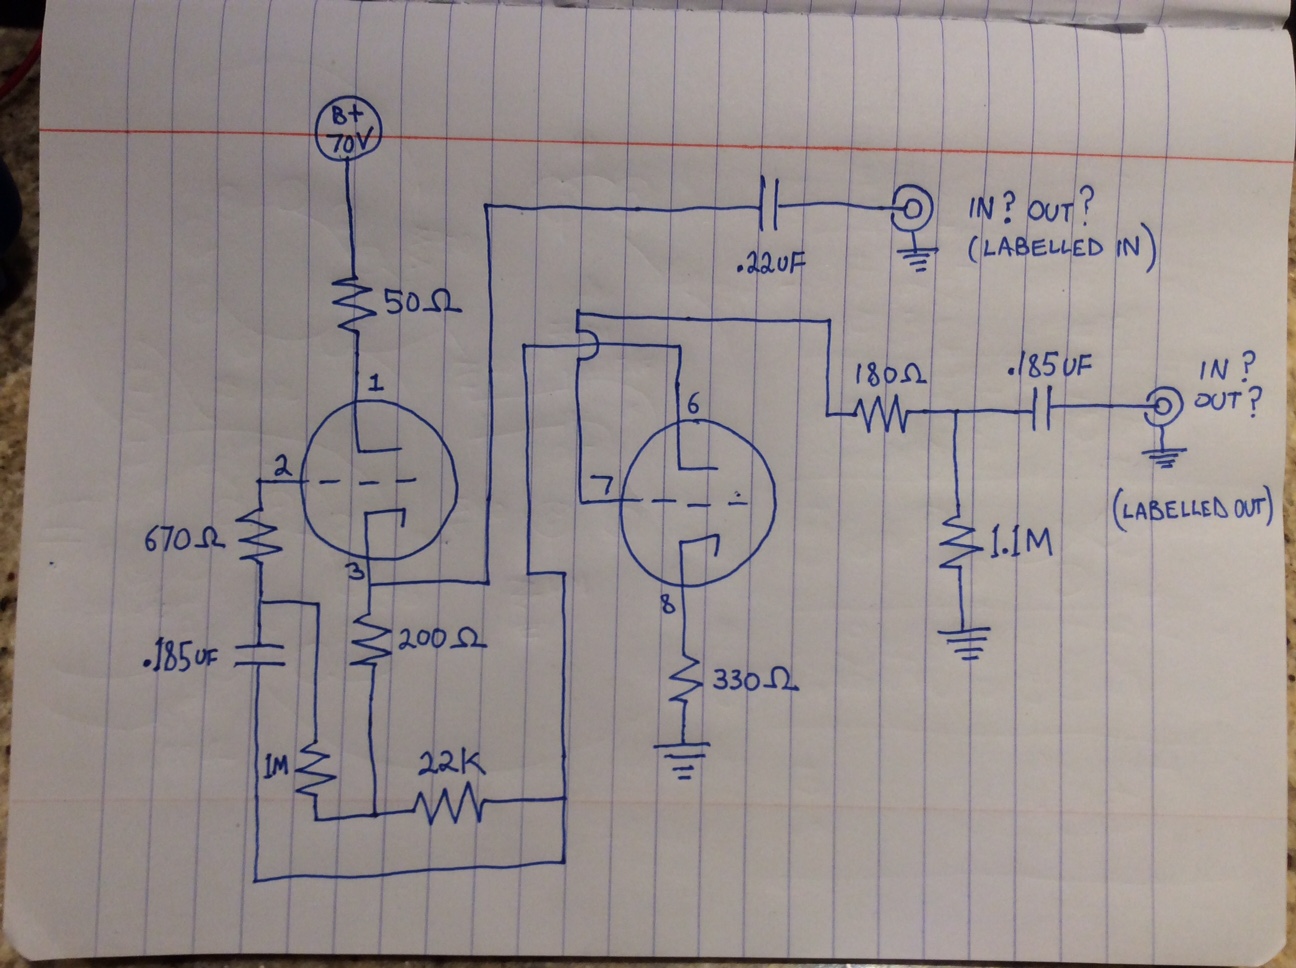 B+
70V
50Ω
1
2
3
670Ω
.185UF
200Ω
1M
22K
.22UF
IN? OUT?
(LABELLED IN)
6
7
8
330Ω
180Ω
.185UF
1.1M
IN?
OUT?
(LABELLED OUT)